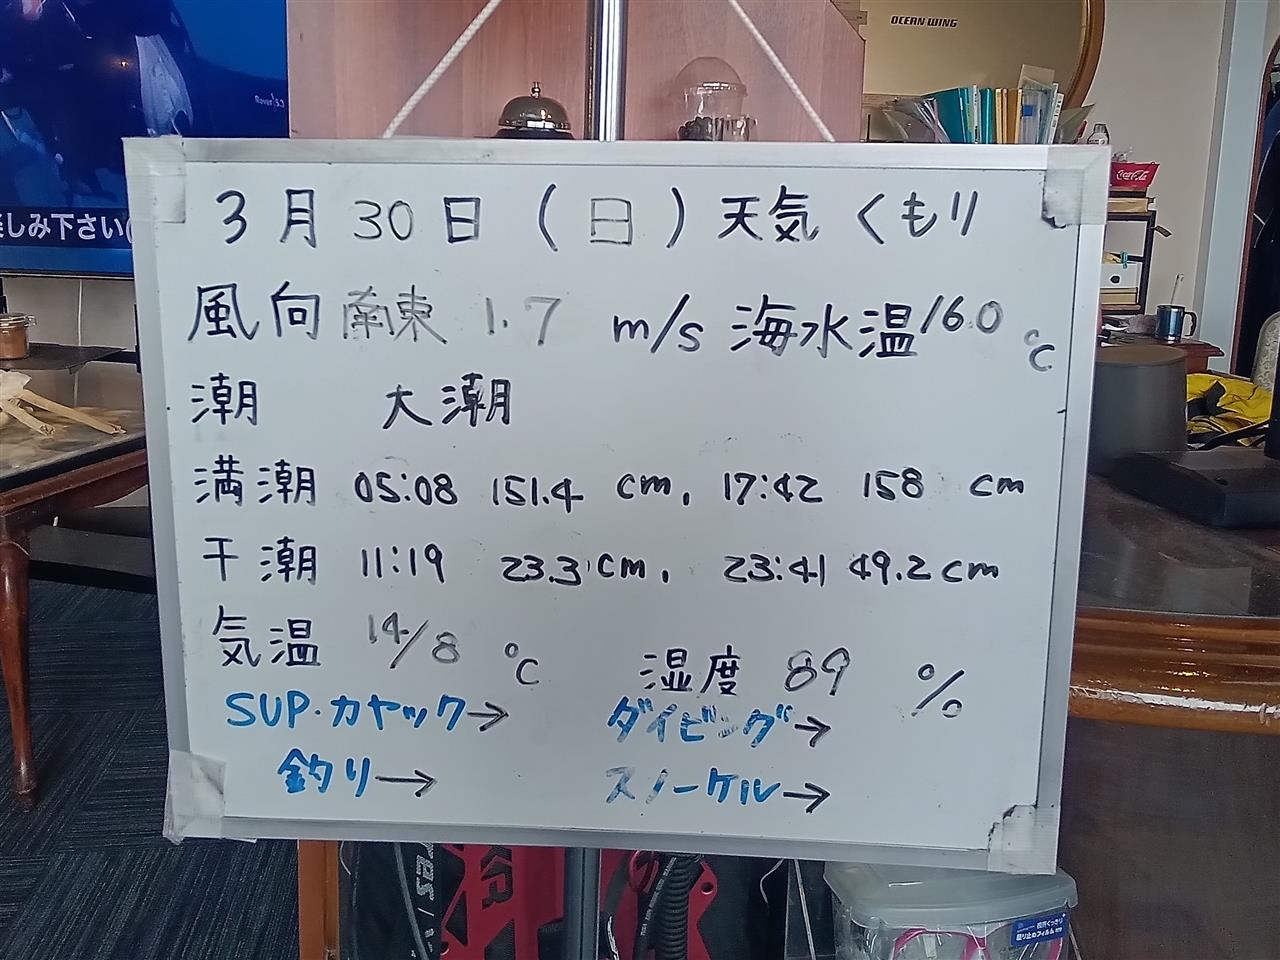 OCEAN WING
Coca-Cola
楽しみ下さい
3月30日(日)天気くもり
風向 南東 1.7 m/s 海水温 16.0 ℃
潮 大潮
満潮 05:08 151.4 cm, 17:42 158 cm
干潮 11:19 23.3 cm, 23:41 49.2 cm
気温 14/8 ℃ 湿度 89 %
SUP・カヤック→ ダイビング→
釣り→ スノーケル→